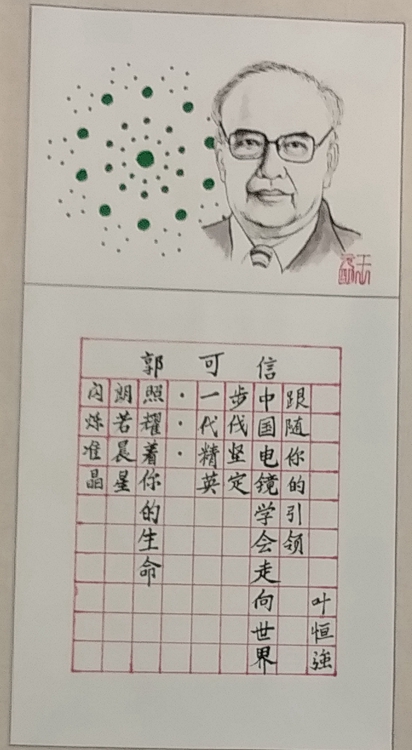 郭可信
叶恒強
跟随你的引领
中国电镜学会走向世界
步伐坚定
一代精英
···
照耀着你的生命
朗若晨星
闪烁准晶